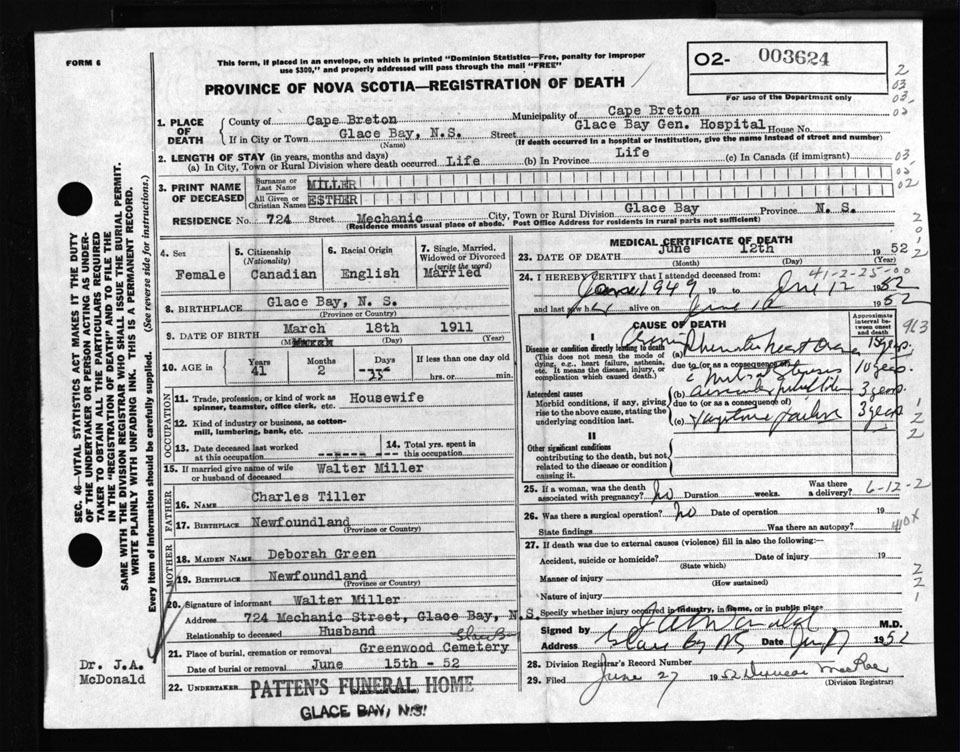 FORM 6
This form, if placed in an envelope, on which is printed "Dominion Statistics—Free, penalty for improper
use $300," and properly addressed will pass through the mail "FREE"
PROVINCE OF NOVA SCOTIA—REGISTRATION OF DEATH
02- 003624
For use of the Department only
2
03
03.
02
1. PLACE OF DEATH
County of Cape Breton Municipality of Cape Breton
If in City or Town Glace Bay, N.S. Street Glace Bay Gen. Hospital House No.
(Name) (If death occurred in a hospital or institution, give the name instead of street and number)
2. LENGTH OF STAY (in years, months and days)
(a) In City, Town or Rural Division where death occurred Life (b) In Province Life (c) In Canada (if immigrant)
03.
02
02
3. PRINT NAME OF DECEASED
Surname or Last Name MILLER
All Given or Christian Names ESTHER
RESIDENCE No. 724 Street Mechanic City, Town or Rural Division Glace Bay Province N. S.
(Residence means usual place of abode. Post Office Address for residents in rural parts not sufficient)
4. Sex
Female
5. Citizenship
(Nationality)
Canadian
6. Racial Origin
English
7. Single, Married, Widowed or Divorced
(write the word)
Married
8. BIRTHPLACE Glace Bay, N. S.
(Province or Country)
9. DATE OF BIRTH March 18th 1911
(Month) (Day) (Year)
10. AGE in
Years Months Days If less than one day old
41 2 hrs. or min.
OCCUPATION
11. Trade, profession, or kind of work as Housewife
spinner, teamster, office clerk, etc.
12. Kind of industry or business, as cotton-
mill, lumbering, bank, etc.
13. Date deceased last worked
at this occupation
14. Total yrs. spent in
this occupation
15. If married give name of wife
or husband of deceased Walter Miller
FATHER
16. NAME Charles Tiller
17. BIRTHPLACE Newfoundland
(Province or Country)
MOTHER
18. MAIDEN NAME Deborah Green
19. BIRTHPLACE Newfoundland
(Province or Country)
20. Signature of informant Walter Miller
Address 724 Mechanic Street, Glace Bay, N.S.
Relationship to deceased Husband
21. Place of burial, cremation or removal Greenwood Cemetery
Glace Bay
Date of burial or removal June 15th - 52
22. UNDERTAKER PATTEN'S FUNERAL HOME
GLACE BAY, N.S.
MEDICAL CERTIFICATE OF DEATH
23. DATE OF DEATH June 12th 1952
(Month) (Day)
24. I HEREBY CERTIFY that I attended deceased from:
41-2-25-00
1949 19 to June 12 1952
and last saw h alive on June 12 1952
CAUSE OF DEATH
Approximate interval between onset and death
I
Disease or condition directly leading to death
(This does not mean the mode of
dying, e.g., heart failure, asthenia,
etc. It means the disease, injury, or
complication which caused death.)
(a)
due to (or as a consequence of)
10 years
Antecedent causes
Morbid conditions, if any, giving
rise to the above cause, stating the
underlying condition last.
(b) 3 years
due to (or as a consequence of)
(c) failure 3 years
II
Other significant conditions
contributing to the death, but not
related to the disease or condition
causing it.
25. If a woman, was the death
associated with pregnancy? no Duration weeks. Was there
a delivery? 6-12-2
26. Was there a surgical operation? no Date of operation 19
State findings Was there an autopsy?
410x
27. If death was due to external causes (violence) fill in also the following:—
Accident, suicide or homicide? Date of injury 19
(State which)
Manner of injury
(How sustained)
Nature of injury
Specify whether injury occurred in industry, in home, or in public place
Signed by J A McDonald M.D.
Address Glace Bay NS Date 1952
28. Division Registrar's Record Number
29. Filed June 27 1952 Duncan MacRae
(Division Registrar)
SEC. 46—VITAL STATISTICS ACT MAKES IT THE DUTY
OF THE UNDERTAKER OR PERSON ACTING AS UNDER-
TAKER TO OBTAIN ALL THE PARTICULARS REQUIRED
IN THE "REGISTRATION OF DEATH" AND TO FILE THE
SAME WITH THE DIVISION REGISTRAR WHO SHALL ISSUE THE BURIAL PERMIT.
WRITE PLAINLY WITH UNFADING INK. THIS IS A PERMANENT RECORD.
Every item of Information should be carefully supplied. (See reverse side for instructions.)
Dr. J.A.
McDonald